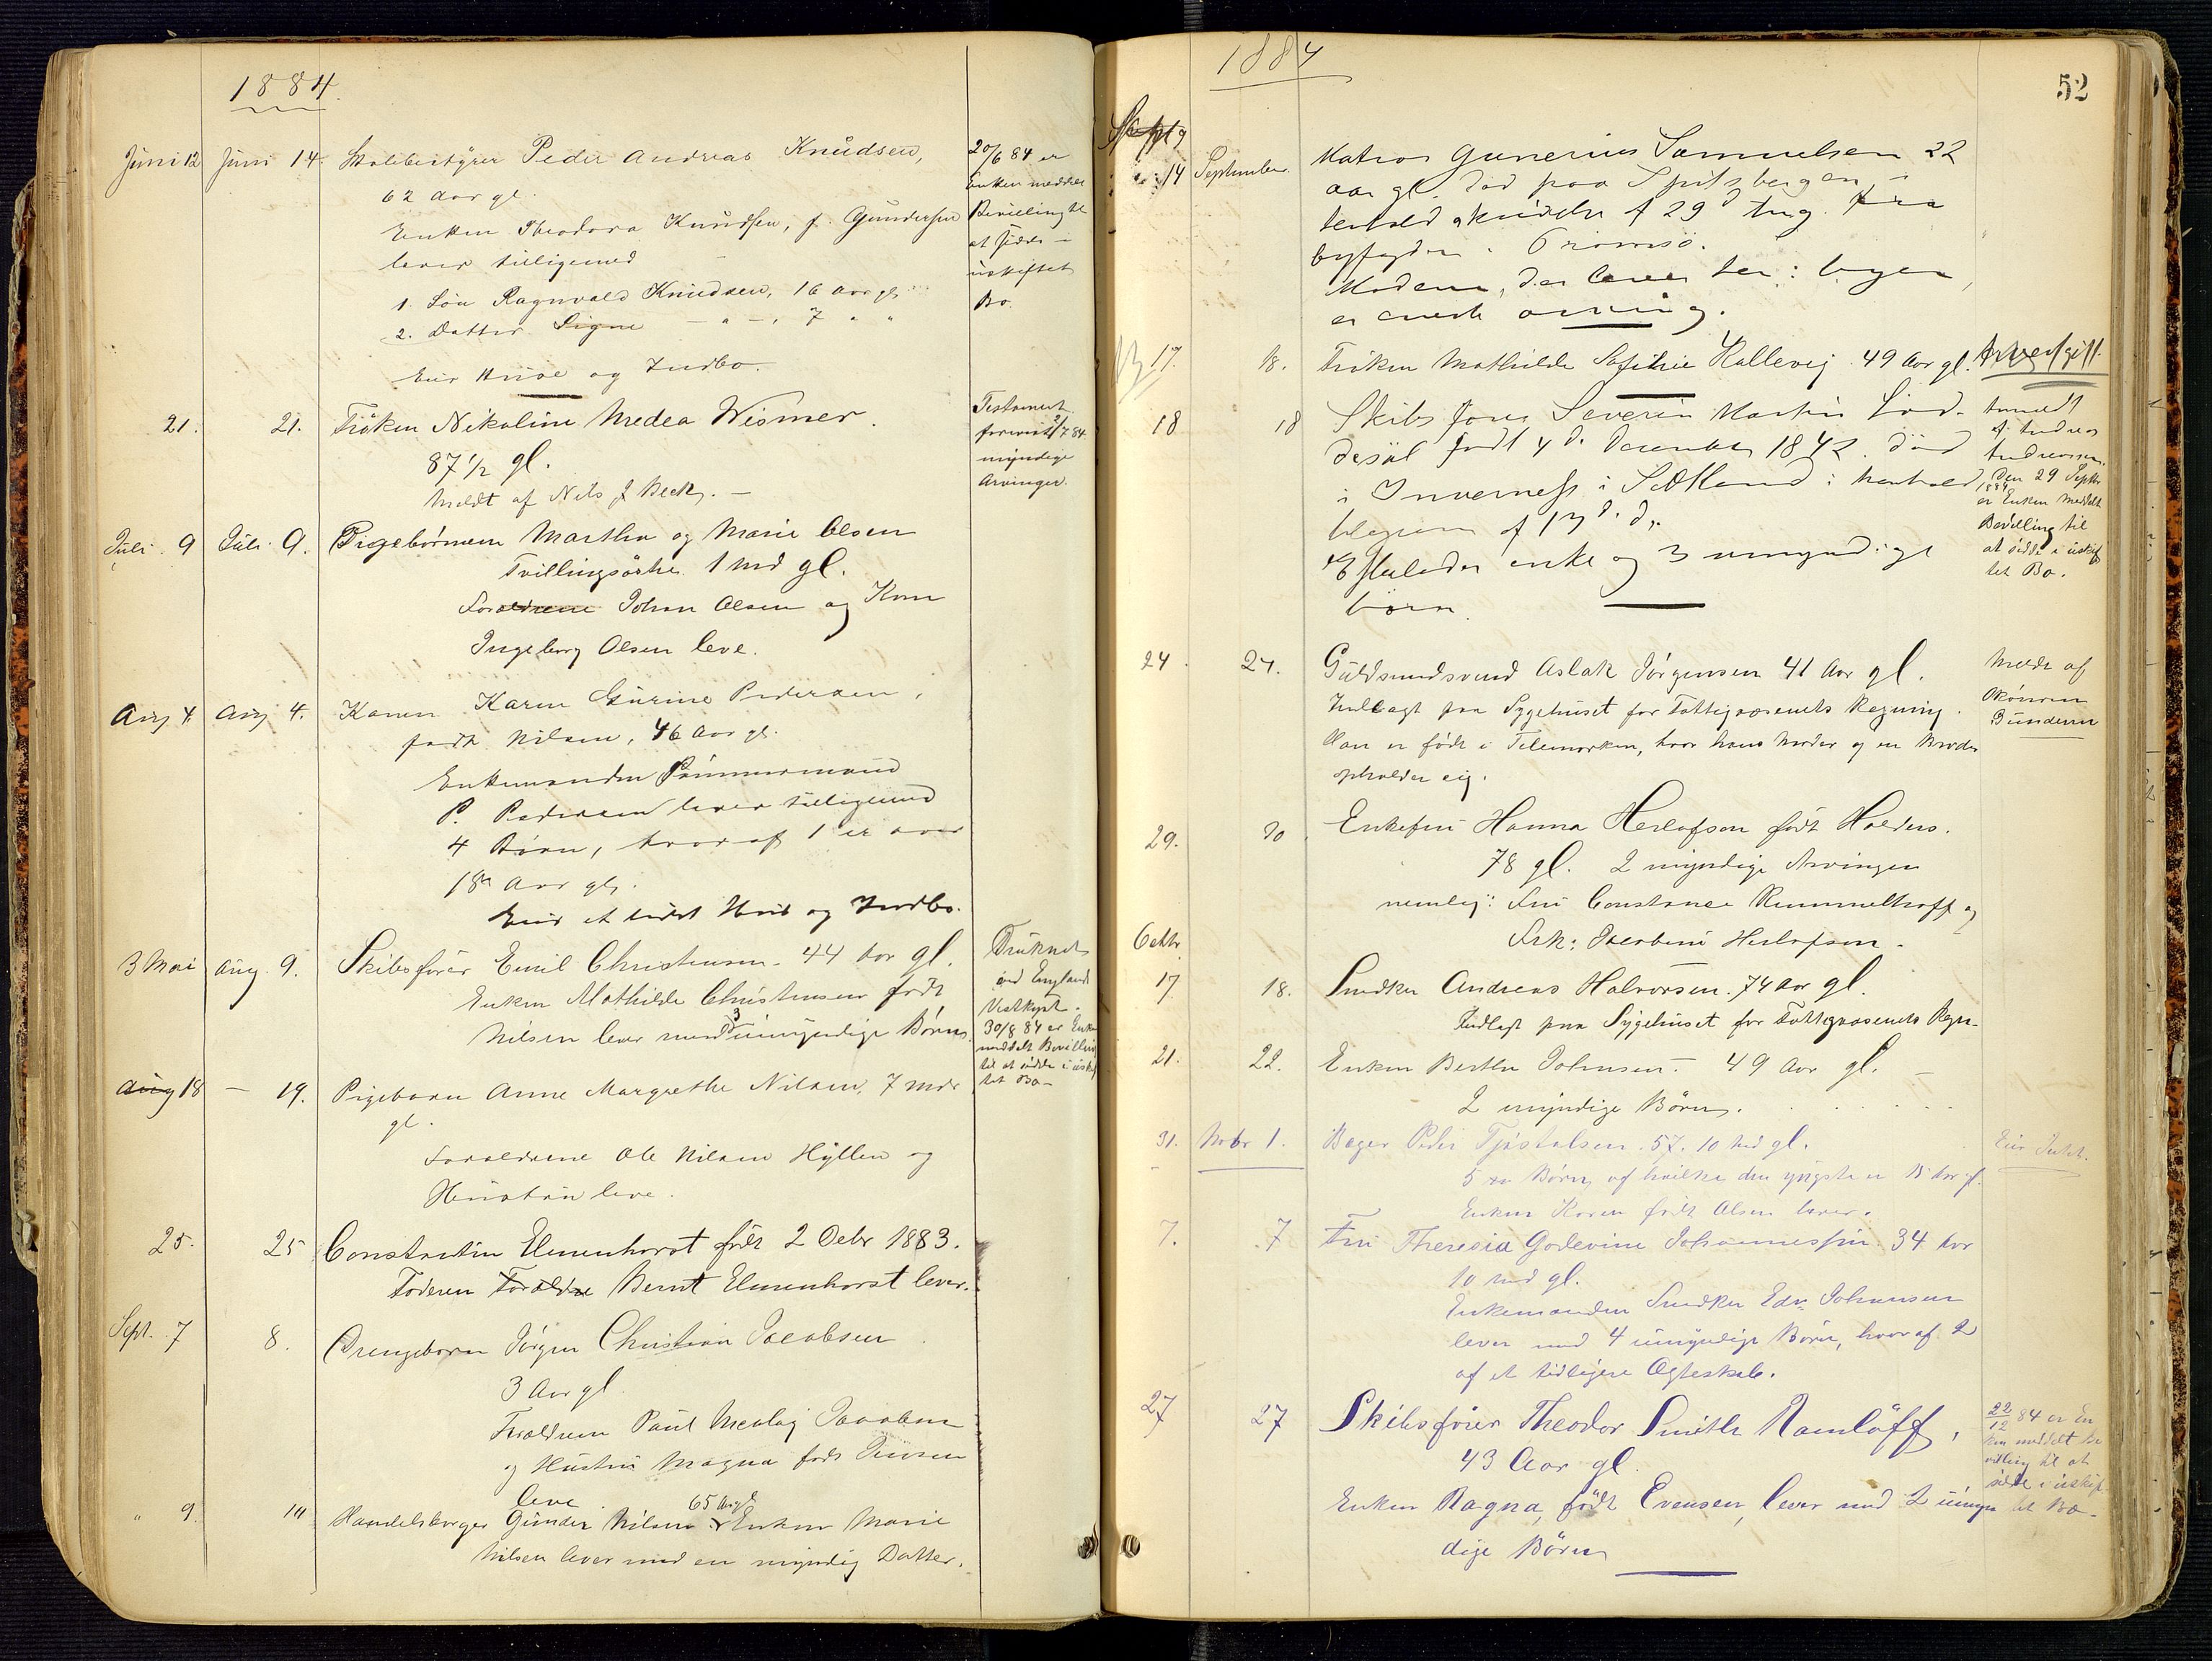 1884.
Juni 12 Juni 14. Skolebestyrer Peder Andreas Knudsen,
62 Aar gl
Enken Theodora Knudsen, f. Gundersen
lever tilligemed
1. Søn Ragnvald Knudsen, 16 Aar gl
2. Datter Signe - " - , 7 " "
Eier Huse og Indbo.
20/6 84 er
Enken meddelt
Bevilling til
at sidde i
uskiftet
Bo.
21. 21. Frøken Nikoline Medea Wismer.
87 1/2 gl.
Meldt af Nils J Beck. -
Testament
myndige
Arvinger.
Juli 9 Juli 9. Pigebørnene Martha og Marie Olsen
Tvillingsøstre 1 Md gl.
Forældrene Johan Olsen og Kone
Ingeborg Olsen leve.
Aug 4. Aug 4. Konen Karen Gurine Pedersen,
født Nilsen, 46 Aar gl.
Enkemanden Tømmermand
P. Pedersen lever tilligemed
4 Børn, hvoraf 1 er over
18 Aar gl.
Eier et lidet Hus og Indbo.
3 Mai Aug. 9. Skibsfører Emil Christensen. 44 Aar gl.
Enken Mathilde Christensen født
Nilsen lever med 3 umyndige Børn.
Druknet
ved Englands
Vestkyst.
30/8 84 er Enken
meddelt Bevilling
til at sidde i uskif
tet Bo-
Aug 18 - 19. Pigebarn Anne Margrethe Nilsen, 7 Mdr
gl.
Forældrene Ole Nilsen Hyllen og
Hustru leve.
25. 25 Constantin Elmenhorst født 2 Octr 1883.
Faderen Forældre Bernt Elmenhorst lever.
Sept. 7 8. Drengebarn Jørgen Christian Jacobsen
3 Aar gl
Forældrene Paul Nicolay Jacobsen
og Hustru Magna født Jensen
leve.
" 9. 10 Handelsborger Gunder Nilsen 65 Aar gl Enken Marie
Nilsen lever med en myndig Datter.
1884
52
14 September. Matros Gunerius Samuelsen 22
aar gl. død paa Spitsbergen i
henhold skrivelse af 29d Aug. fra
byfogden i Tromsø.
Moderen, der lever her i byen,
er eneste arving.
17. 18. Frøken Mathilde Sofie Kallevig. 49 Aar gl.
18 18 Skibsfører Severin Martin
født 4 de December 1842. død
i Inverness i Skotland i henhold
af 17 d. d.
Efterlader enke og 3 umyndige
børn.
Anmeldt
af Andreas
Andreassen.
Den 29 Septbr
1884
er Enken meddelt
Bevilling til
at sidde i uskif
tet Bo.
24. 27. Guldsmedsvend Aslak Jørgensen 41 Aar gl.
Indlagt paa Sygehuset for Fattigvæsenets Regning.
Han er født i Telemarken, hvor hans Moder og en Broder
opholder sig.
Meldt af
Økonom
Gundersen
29. 30 Enkefru Hanna Herlofson født Holders.
78 gl. 2 myndige Arvinger
nemlig: Fru Constance Rummelhoff og
Frk: Jacobine Herlofson.
Octbr
17 18. Snedker Andreas Halvorsen. 74 Aar gl.
Indlagt paa Sygehuset for Fattigvæsenets Regn-
21. 22. Enken Berthe Johnsen - 49 Aar gl. -
2 myndige Børn.
31. Novbr 1. Bager Peder Tjøstolsen. 57. 10 Md gl.
5 Børn, af hvilke den yngste er 15 Aar gl.
Enken Karen født Olsen lever.
7. 7 Fru Theresia Godevine Johannessen. 34 Aar
10 Md gl.
Enkemanden Snedker Edv. Johansen
lever med 4 umyndige Børn, hvoraf 2
af et tidligere Ægteskab.
27 27 Skibsfører Theodor Smith Ramløff,
43 Aar gl.
Enken Ragna, født Evensen, lever med 2 umyn
dige Børn
22/12 84 er En
ken meddelt Be
villing til at
sidde i uskif
tet Bo-